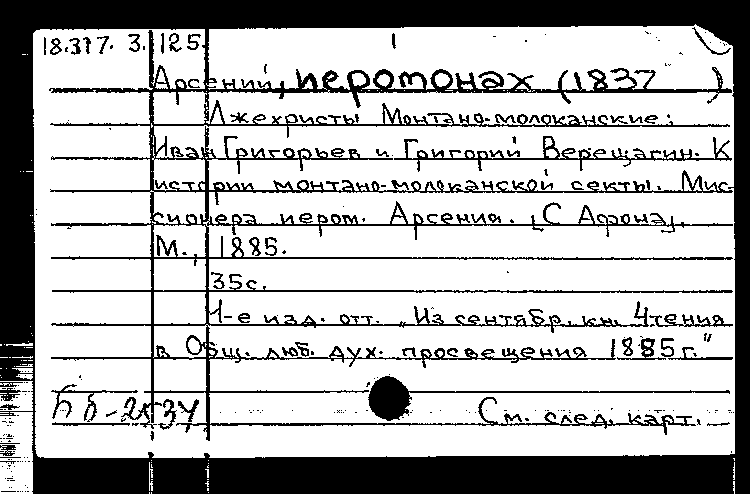 18.317. 3. 125. 1
Арсений, иеромонах (1837 )
Лжехристы Монтано-молоканские:
Иван Григорьев и Григорий Верещагин. К
истории монтано-молоканской секты. Мис-
сионера иером. Арсения. [С Афона].
М., 1885.
35с.
1-е изд. отт. „Из сентябр. кн. Чтения
в Общ. люб. дух. просвещения 1885г."
См. след. карт.